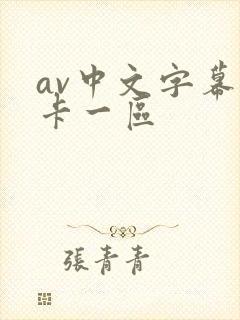 av中文字幕
卡一區
張青青